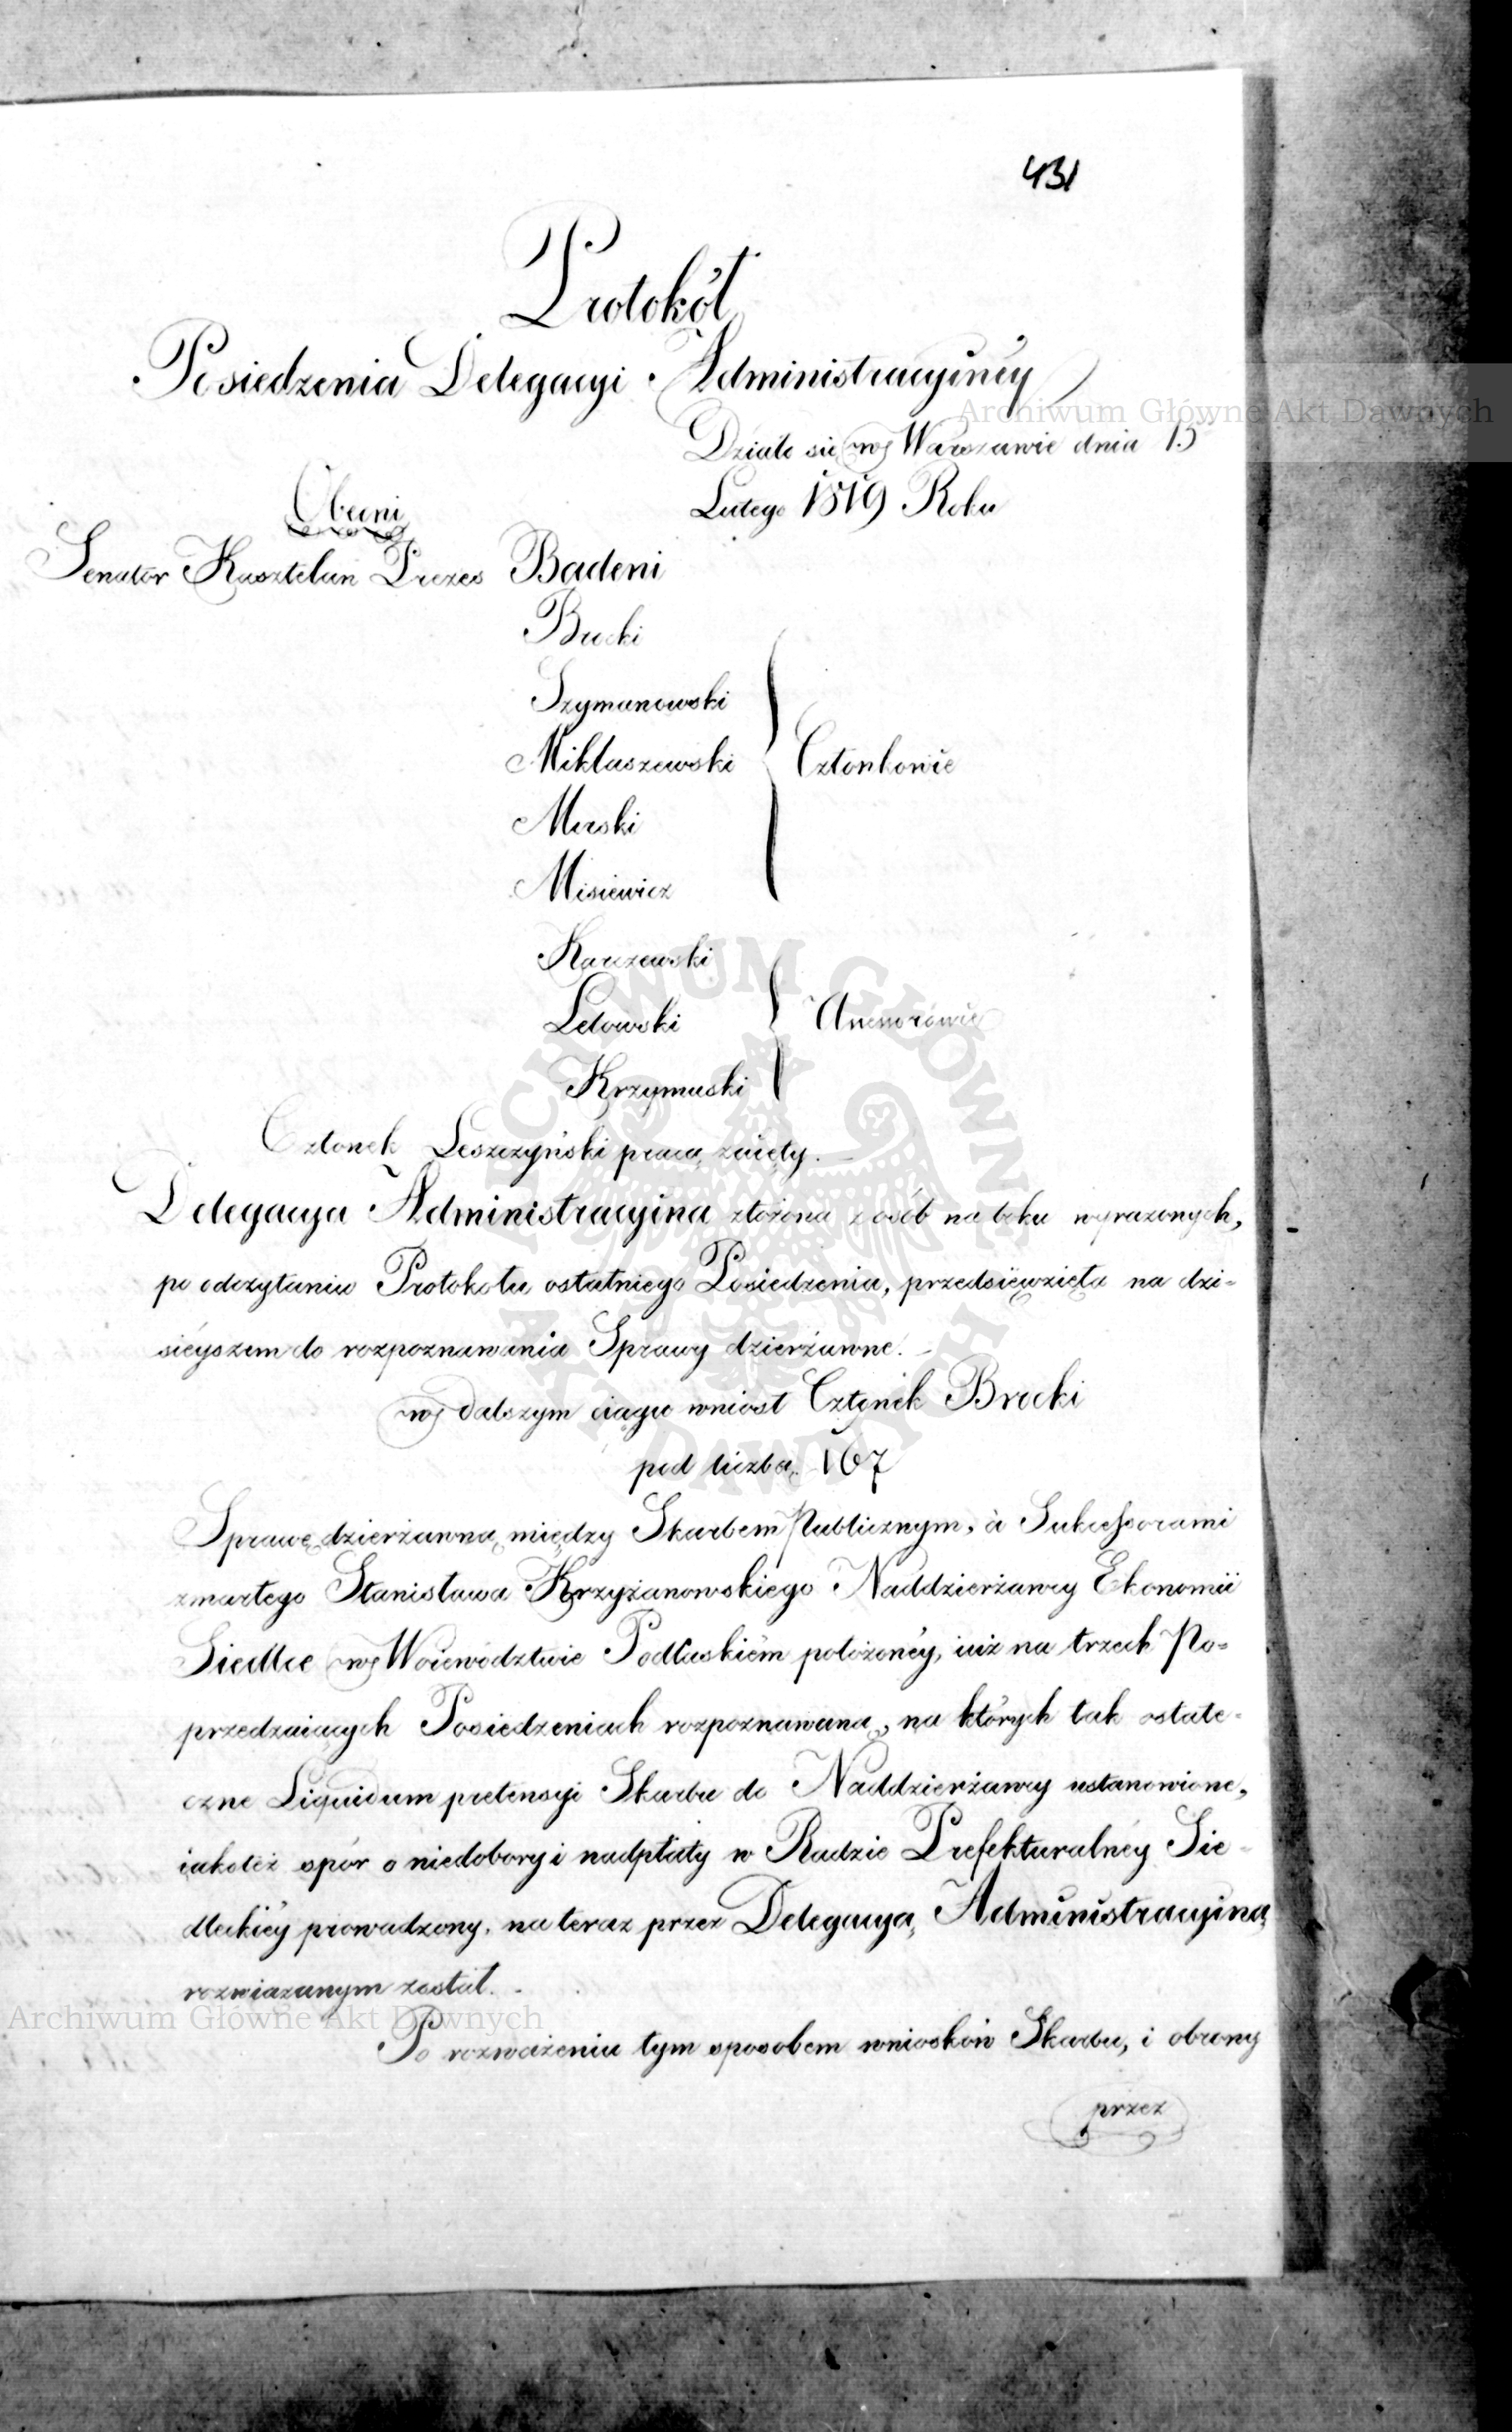 431
Protokół
Posiedzenia Delegacyi Administracyinéy
Działo się w Warszawie dnia 15
Lutego 1819 Roku
Obecni
Senator Kasztelan Prezes Badeni
Brocki
Szymanowski
Miklaszewski Członkowie
Merski
Misiewicz
Karczewski
Letowski
Krzymuski
Członek Leszczyński pracą zaięty.
Delegacya Administracyina złożona z osób na boku wyrażonych,
po odczytaniu Protokołu ostatniego Posiedzenia, przedsięwzięła na dzi-
sieyszem do rozpoznawania Sprawy dzierżawne.
w dalszym ciągu wniosł Członek Brocki
pod liczbą 167
Sprawę dzierżawną między Skarbem Publicznym, à Sukcessorami
zmarłego Stanisława Krzyżanowskiego Naddzierżawcy Ekonomii
Siedlce w Woiewodztwie Podlaskiém położonéy, iuż na trzech Po-
przedzaiących Posiedzeniach rozpoznawaną, na których tak ostate-
czne Liquidum pretensyi Skarbu do Naddzierżawcy ustanowione,
iakoteż spór o niedobory i nadpłaty w Radzie Prefekturalnéy Sie-
dleckiéy prowadzony, na teraz przez Delegacyą Administracyiną
rozwiązanym został.
Po rozważeniu tym sposobem wniosków Skarbu, i obrony
przez
Archiwum Główne Akt Dawnych
Archiwum Główne Akt Dawnych
ARCHIWUM GŁÓWNE AKT DAWNYCH